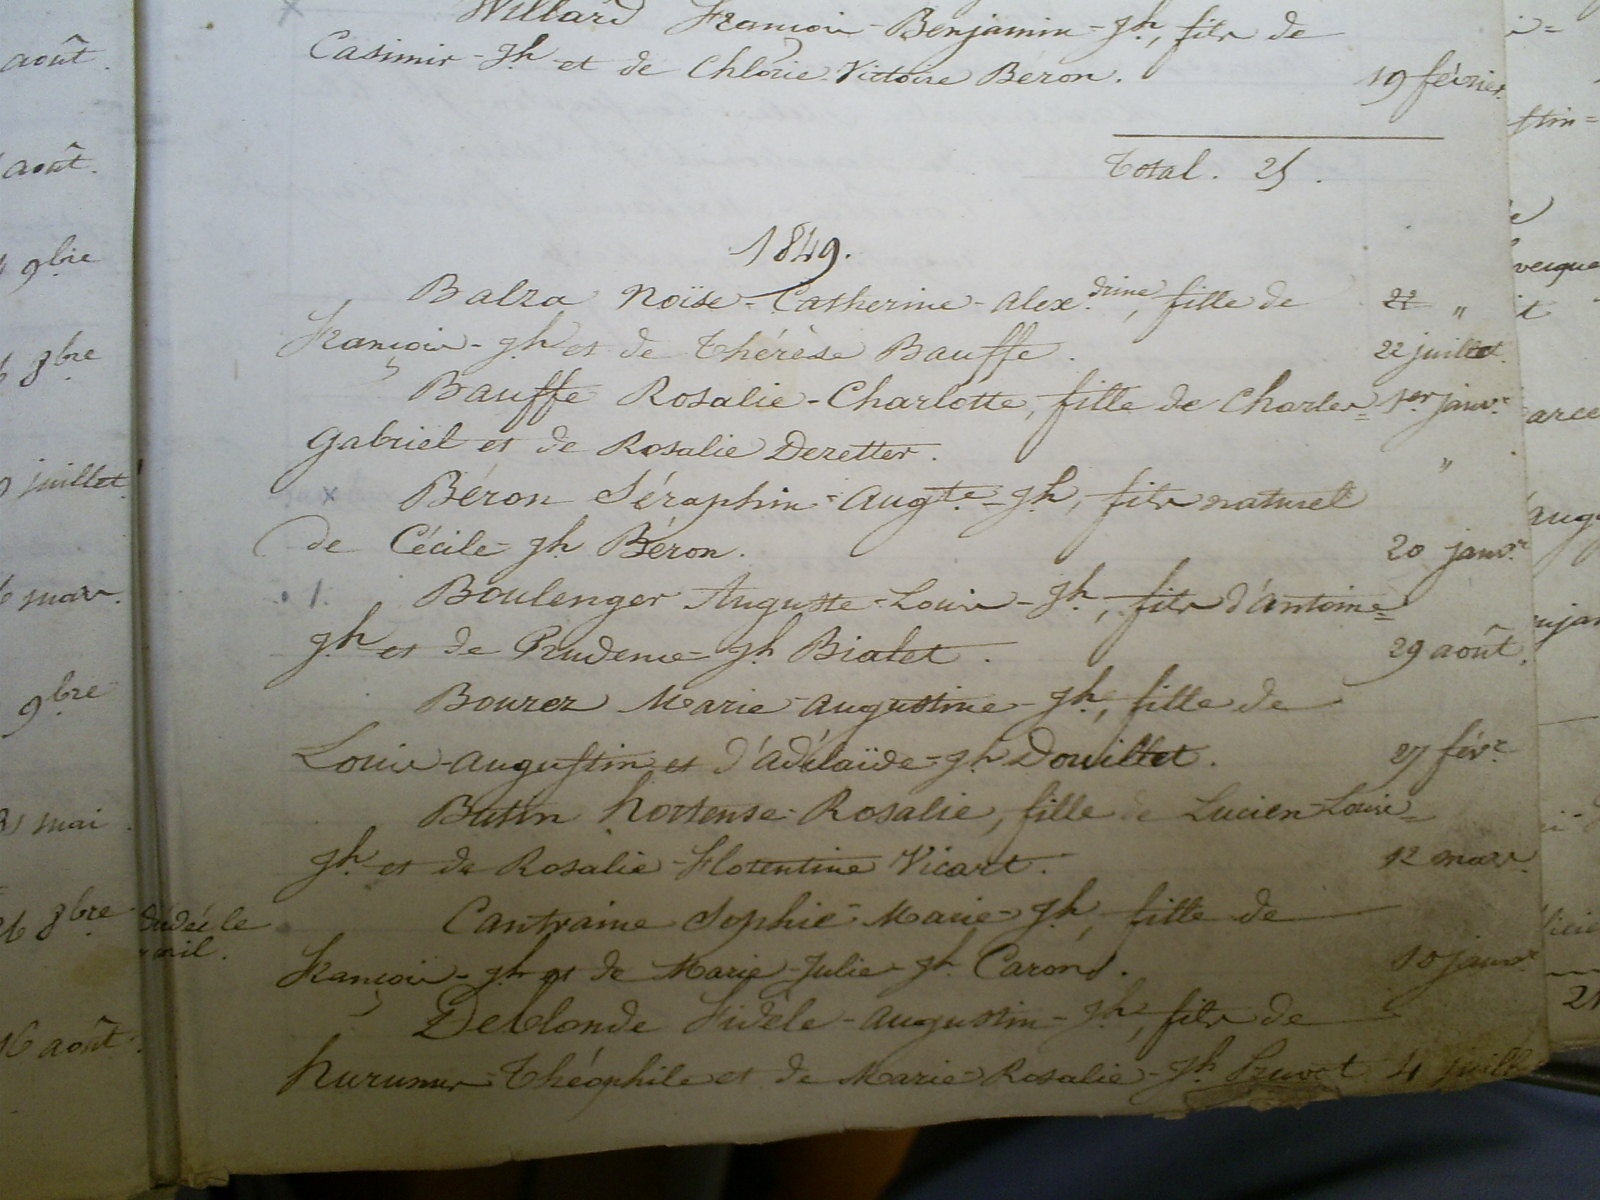 août.
août.
9bre
8bre
juillet
mars.
9bre
mai.
8bre
16 août.
Willard François-Benjamin-Jh, fils de
Casimir-Jh et de Chlorie Victoire Béron. 19 février.
Total. 25.
1849.
Balza Noïse-Catherine-Alex.drine, fille de 22 "
François-Jh et de Thérèse Bauffe. 22 juillet.
Bauffe Rosalie-Charlotte, fille de Charles= 1er janv.r
Gabriel et de Rosalie Deretter. "
x Béron Séraphin-Aug.te-Jh, fils naturel
de Cécile-Jh Béron. 20 janv.r
1. Boulenger Auguste-Louis-Jh, fils d'antoine=
Jh et de Prudence-Jh Bialet. 29 août.
Bourez Marie-Augustine-Jh, fille de
Louis-Augustin et d'adélaïde-Jh Douillet. 27 fév.r
Butin hortense-Rosalie, fille de Lucien-Louis=
Jh et de Rosalie-Florentine Vicart. 12 mars.
Cantraine Sophie-Marie-Jh, fille de
François-Jh et de Marie-Julie-Jh Caron. 10 janv.r
Deblonde Fidèle-Augustin-Jh, fils de
Théophile et de Marie-Rosalie-Jh Pruvot 4 juill